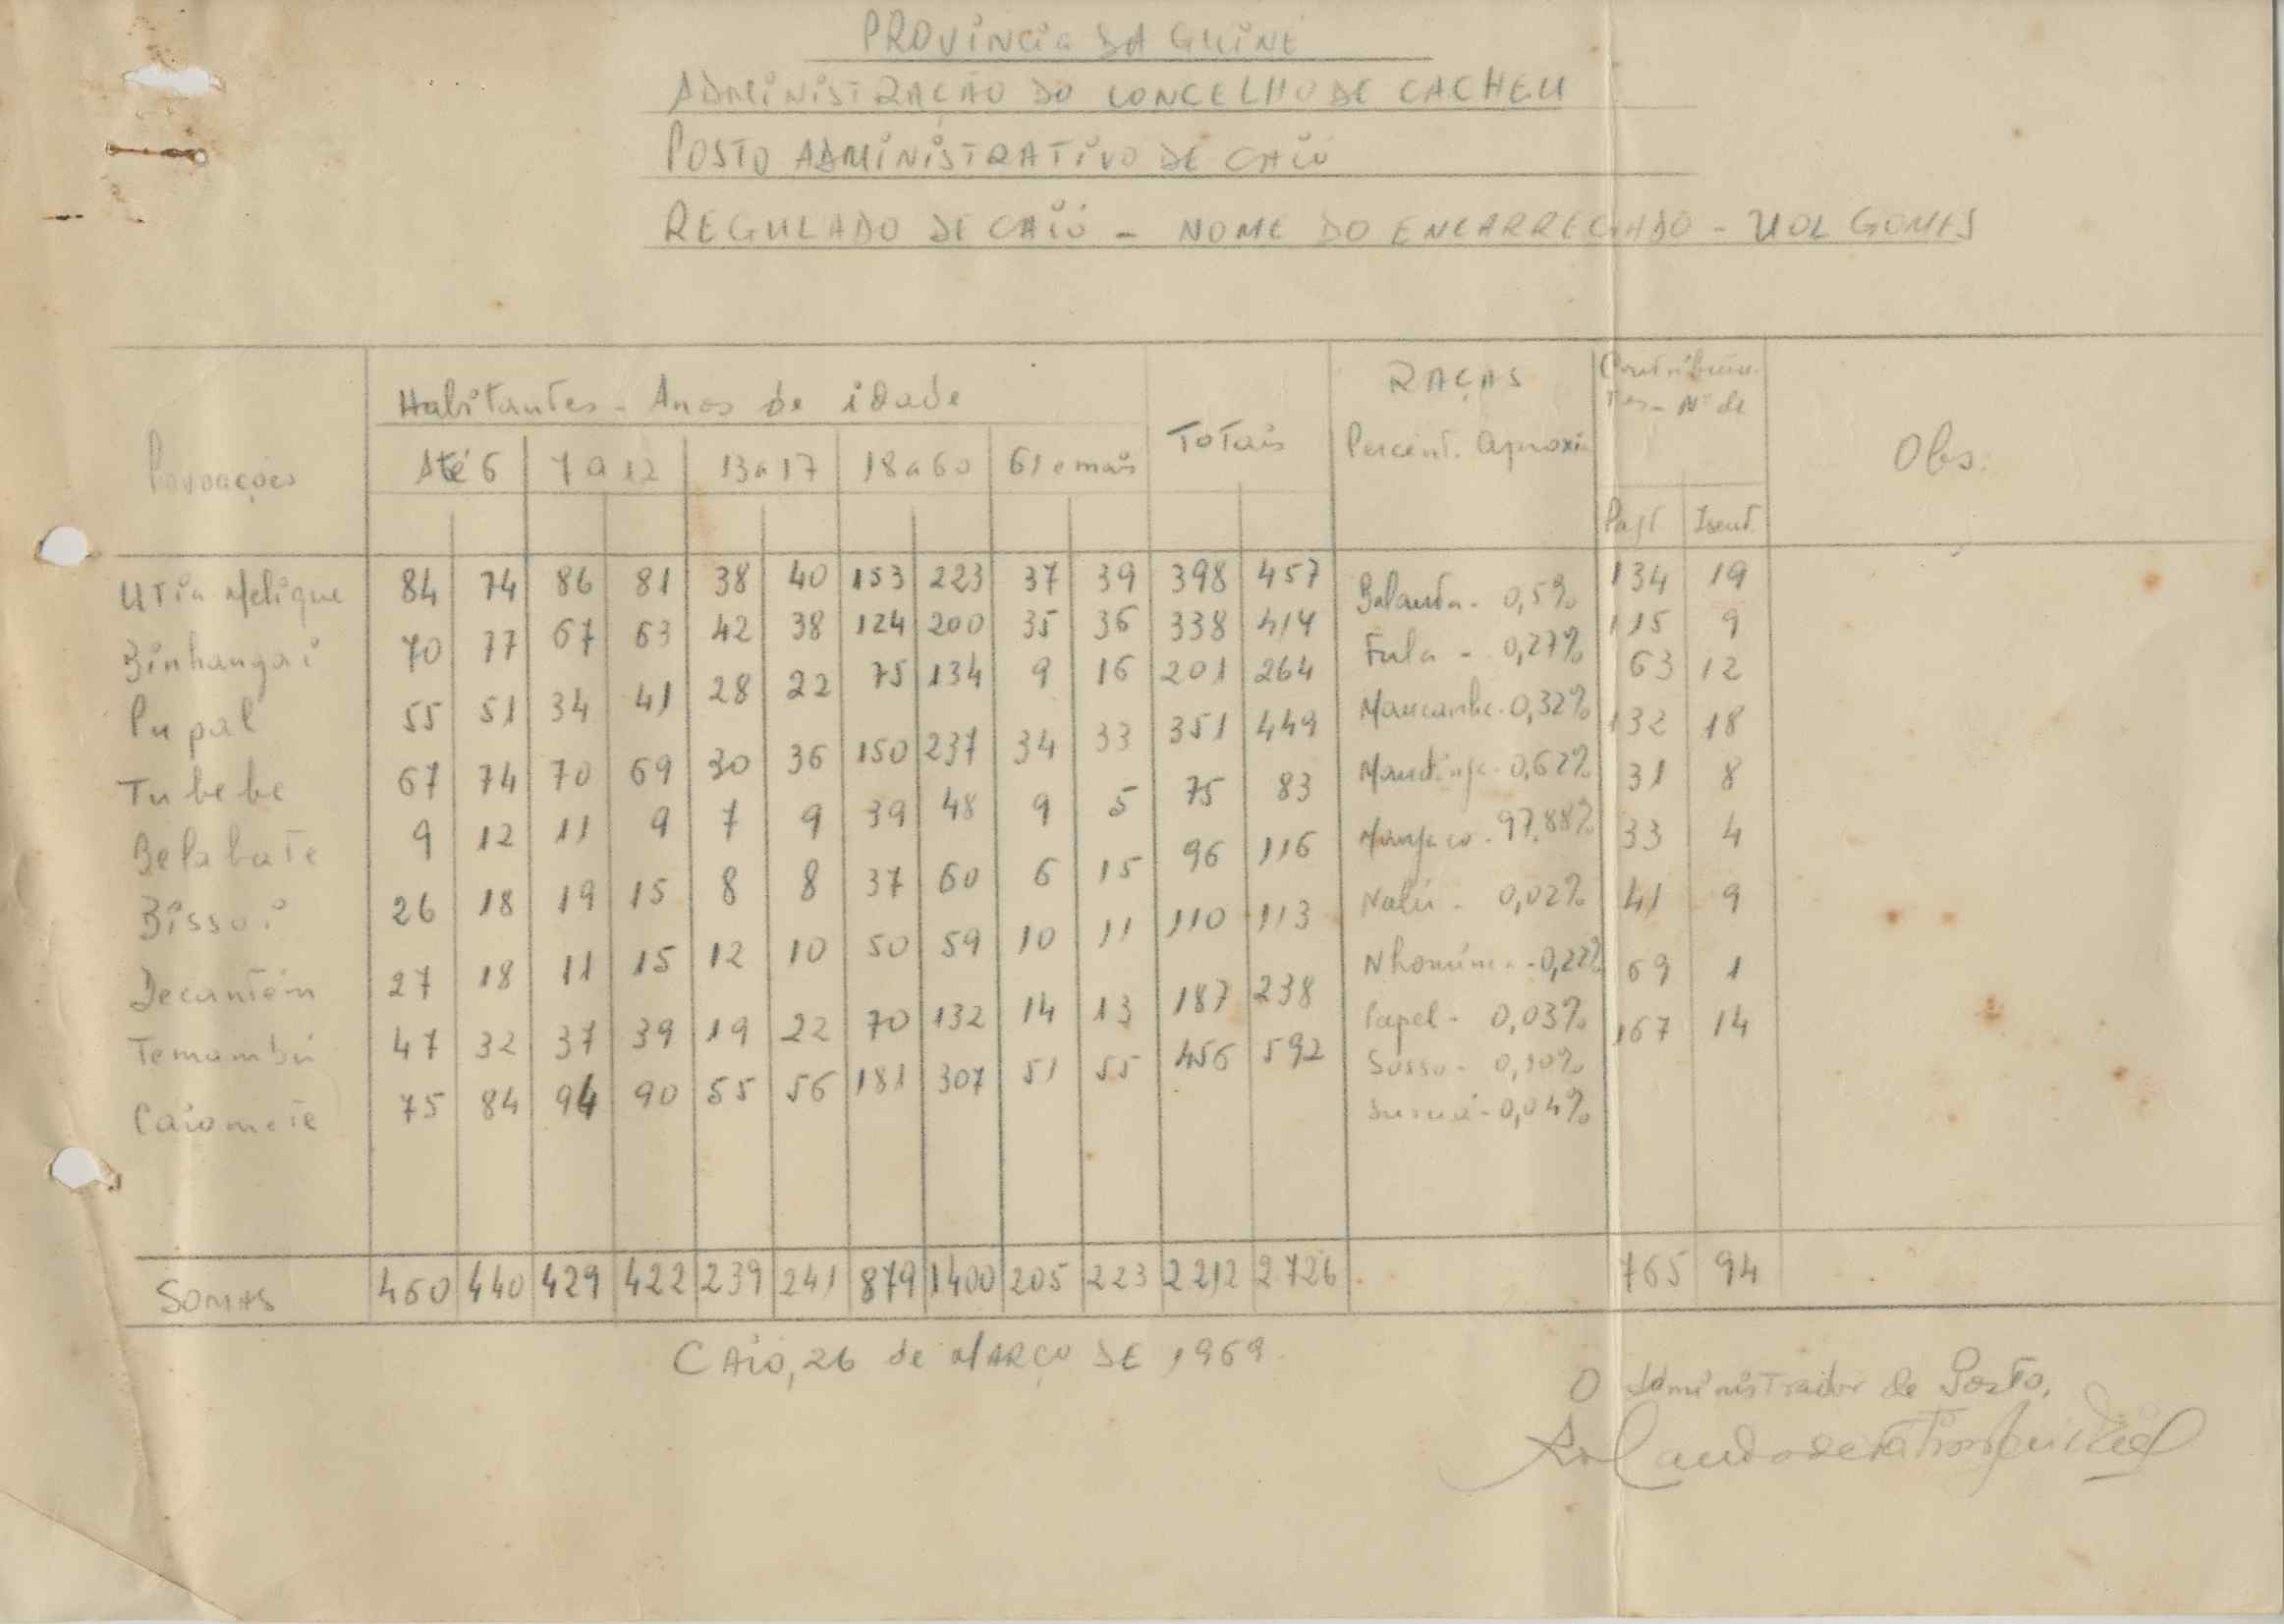 PROVINCIA DA GUINE
ADMINISTRAÇÃO DO CONCELHO DE CACHEU
POSTO ADMINISTRATIVO DE CAIÓ
REGULADO DE CAIÓ - NOME DO ENCARREGADO - UOL GOMES
Povoações Habitantes - Anos de idade Totais RAÇAS Percent. aproxi. Contribuin-tes - Nº de Obs.
Até 6 7 a 12 13 a 17 18 a 60 61 e mais Pagt. Isent.
Utia Melique 84 74 86 81 38 40 153 223 37 39 398 457 Balanta - 0,5% 134 19
Binhangai 70 77 67 63 42 38 124 200 35 36 338 414 Fula - 0,27% 115 9
Pupal 55 51 34 41 28 22 75 134 9 16 201 264 Mancanhe - 0,32% 63 12
Tubebe 67 74 70 69 30 36 150 237 34 33 351 449 Mandinga - 0,62% 132 18
Belabate 9 12 11 9 7 9 39 48 9 5 75 83 Manjaco - 97,88% 31 8
Bissoi 26 18 19 15 8 8 37 60 6 15 96 116 Nalú - 0,02% 33 4
Decantem 27 18 11 15 12 10 50 59 10 11 110 113 Nhominca - 0,22% 41 9
Temambú 47 32 37 39 19 22 70 132 14 13 187 238 Papel - 0,03% 69 1
Caiomete 75 84 94 90 55 56 181 307 51 55 456 592 Sosso - 0,10% 167 14
0,04%
SOMAS 460 440 429 422 239 241 879 1400 205 223 2212 2726 765 94
CAIÓ, 26 de MARÇO DE 1969
O Administrador de Posto,